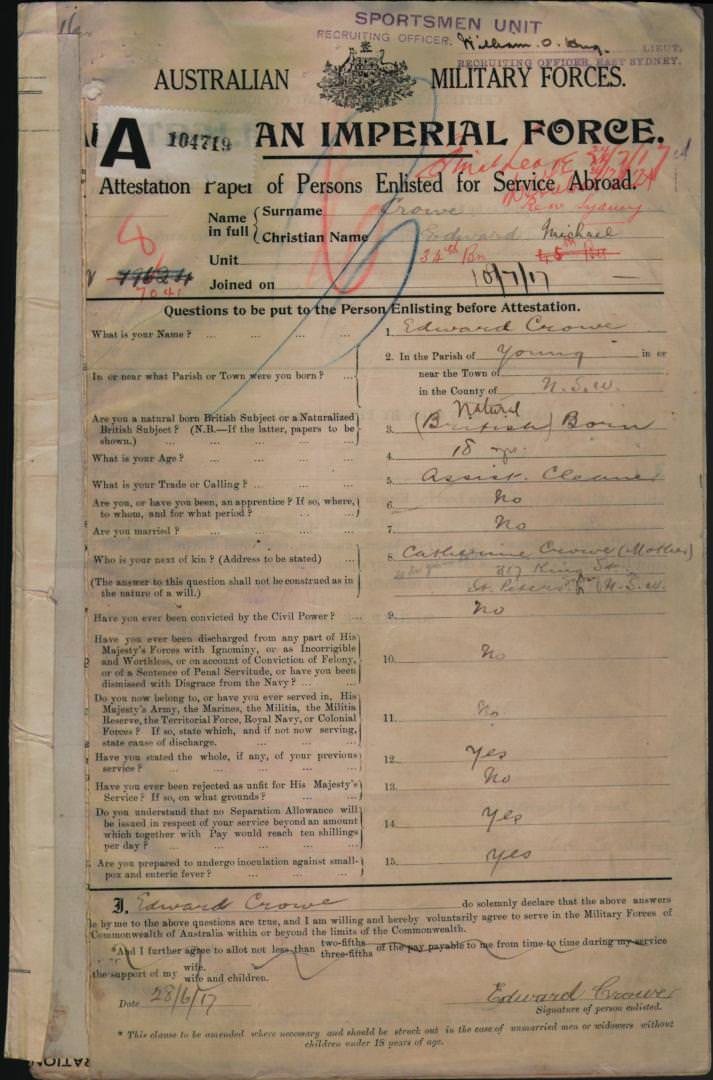 SPORTSMEN UNIT
RECRUITING OFFICER. William O.
LIEUT,
RECRUITING OFFICER, EAST SYDNEY.
AUSTRALIAN MILITARY FORCES.
A 104719
AN IMPERIAL FORCE.
Attestation Paper of Persons Enlisted for Service Abroad.
24/7/17
New Sydney
Name in full { Surname Crowe
Christian Name Edward Michael
8
Unit 34th Bn
7041
Joined on 10/7/17
Questions to be put to the Person Enlisting before Attestation.
What is your Name? ... ... ... ... 1. Edward Crowe
In or near what Parish or Town were you born? ... 2. In the Parish of Young in or
near the Town of
in the County of N.S.W.
Are you a natural born British Subject or a Naturalized
British Subject? (N.B.—If the latter, papers to be
shown.) ... ... ... ... 3. (Natural British) Born
What is your Age? ... ... ... ... 4. 18 yrs.
What is your Trade or Calling? ... ... ... ... 5. Assist. Cleaner
Are you, or have you been, an apprentice? If so, where,
to whom, and for what period? ... ... 6. No
Are you married? ... ... ... ... 7. No
Who is your next of kin? (Address to be stated) ... 8. Catherine Crowe (Mother)
King St.
(The answer to this question shall not be construed as in
the nature of a will.) St. Peters N.S.W.
Have you ever been convicted by the Civil Power? ... 9. No
Have you ever been discharged from any part of His
Majesty's Forces with Ignominy, or as Incorrigible
and Worthless, or on account of Conviction of Felony,
or of a Sentence of Penal Servitude, or have you been
dismissed with Disgrace from the Navy? ... ... 10. No
Do you now belong to, or have you ever served in, His
Majesty's Army, the Marines, the Militia, the Militia
Reserve, the Territorial Force, Royal Navy, or Colonial
Forces? If so, state which, and if not now serving,
state cause of discharge. ... ... ... 11. No
Have you stated the whole, if any, of your previous
service? ... ... ... ... ... 12. Yes
Have you ever been rejected as unfit for His Majesty's
Service? If so, on what grounds? ... ... 13. No
Do you understand that no Separation Allowance will
be issued in respect of your service beyond an amount
which together with Pay would reach ten shillings
per day? ... ... ... ... ... 14. Yes
Are you prepared to undergo inoculation against small-
pox and enteric fever? ... ... ... 15. Yes
I, Edward Crowe do solemnly declare that the above answers
by me to the above questions are true, and I am willing and hereby voluntarily agree to serve in the Military Forces of
Commonwealth of Australia within or beyond the limits of the Commonwealth.
*And I further agree to allot not less than two-fifths three-fifths of the pay payable to me from time to time during my service
the support of my wife. wife and children.
Date 28/6/17 Edward Crowe
Signature of person enlisted.
* This clause to be amended where necessary and should be struck out in the case of unmarried men or widowers without
children under 18 years of age.